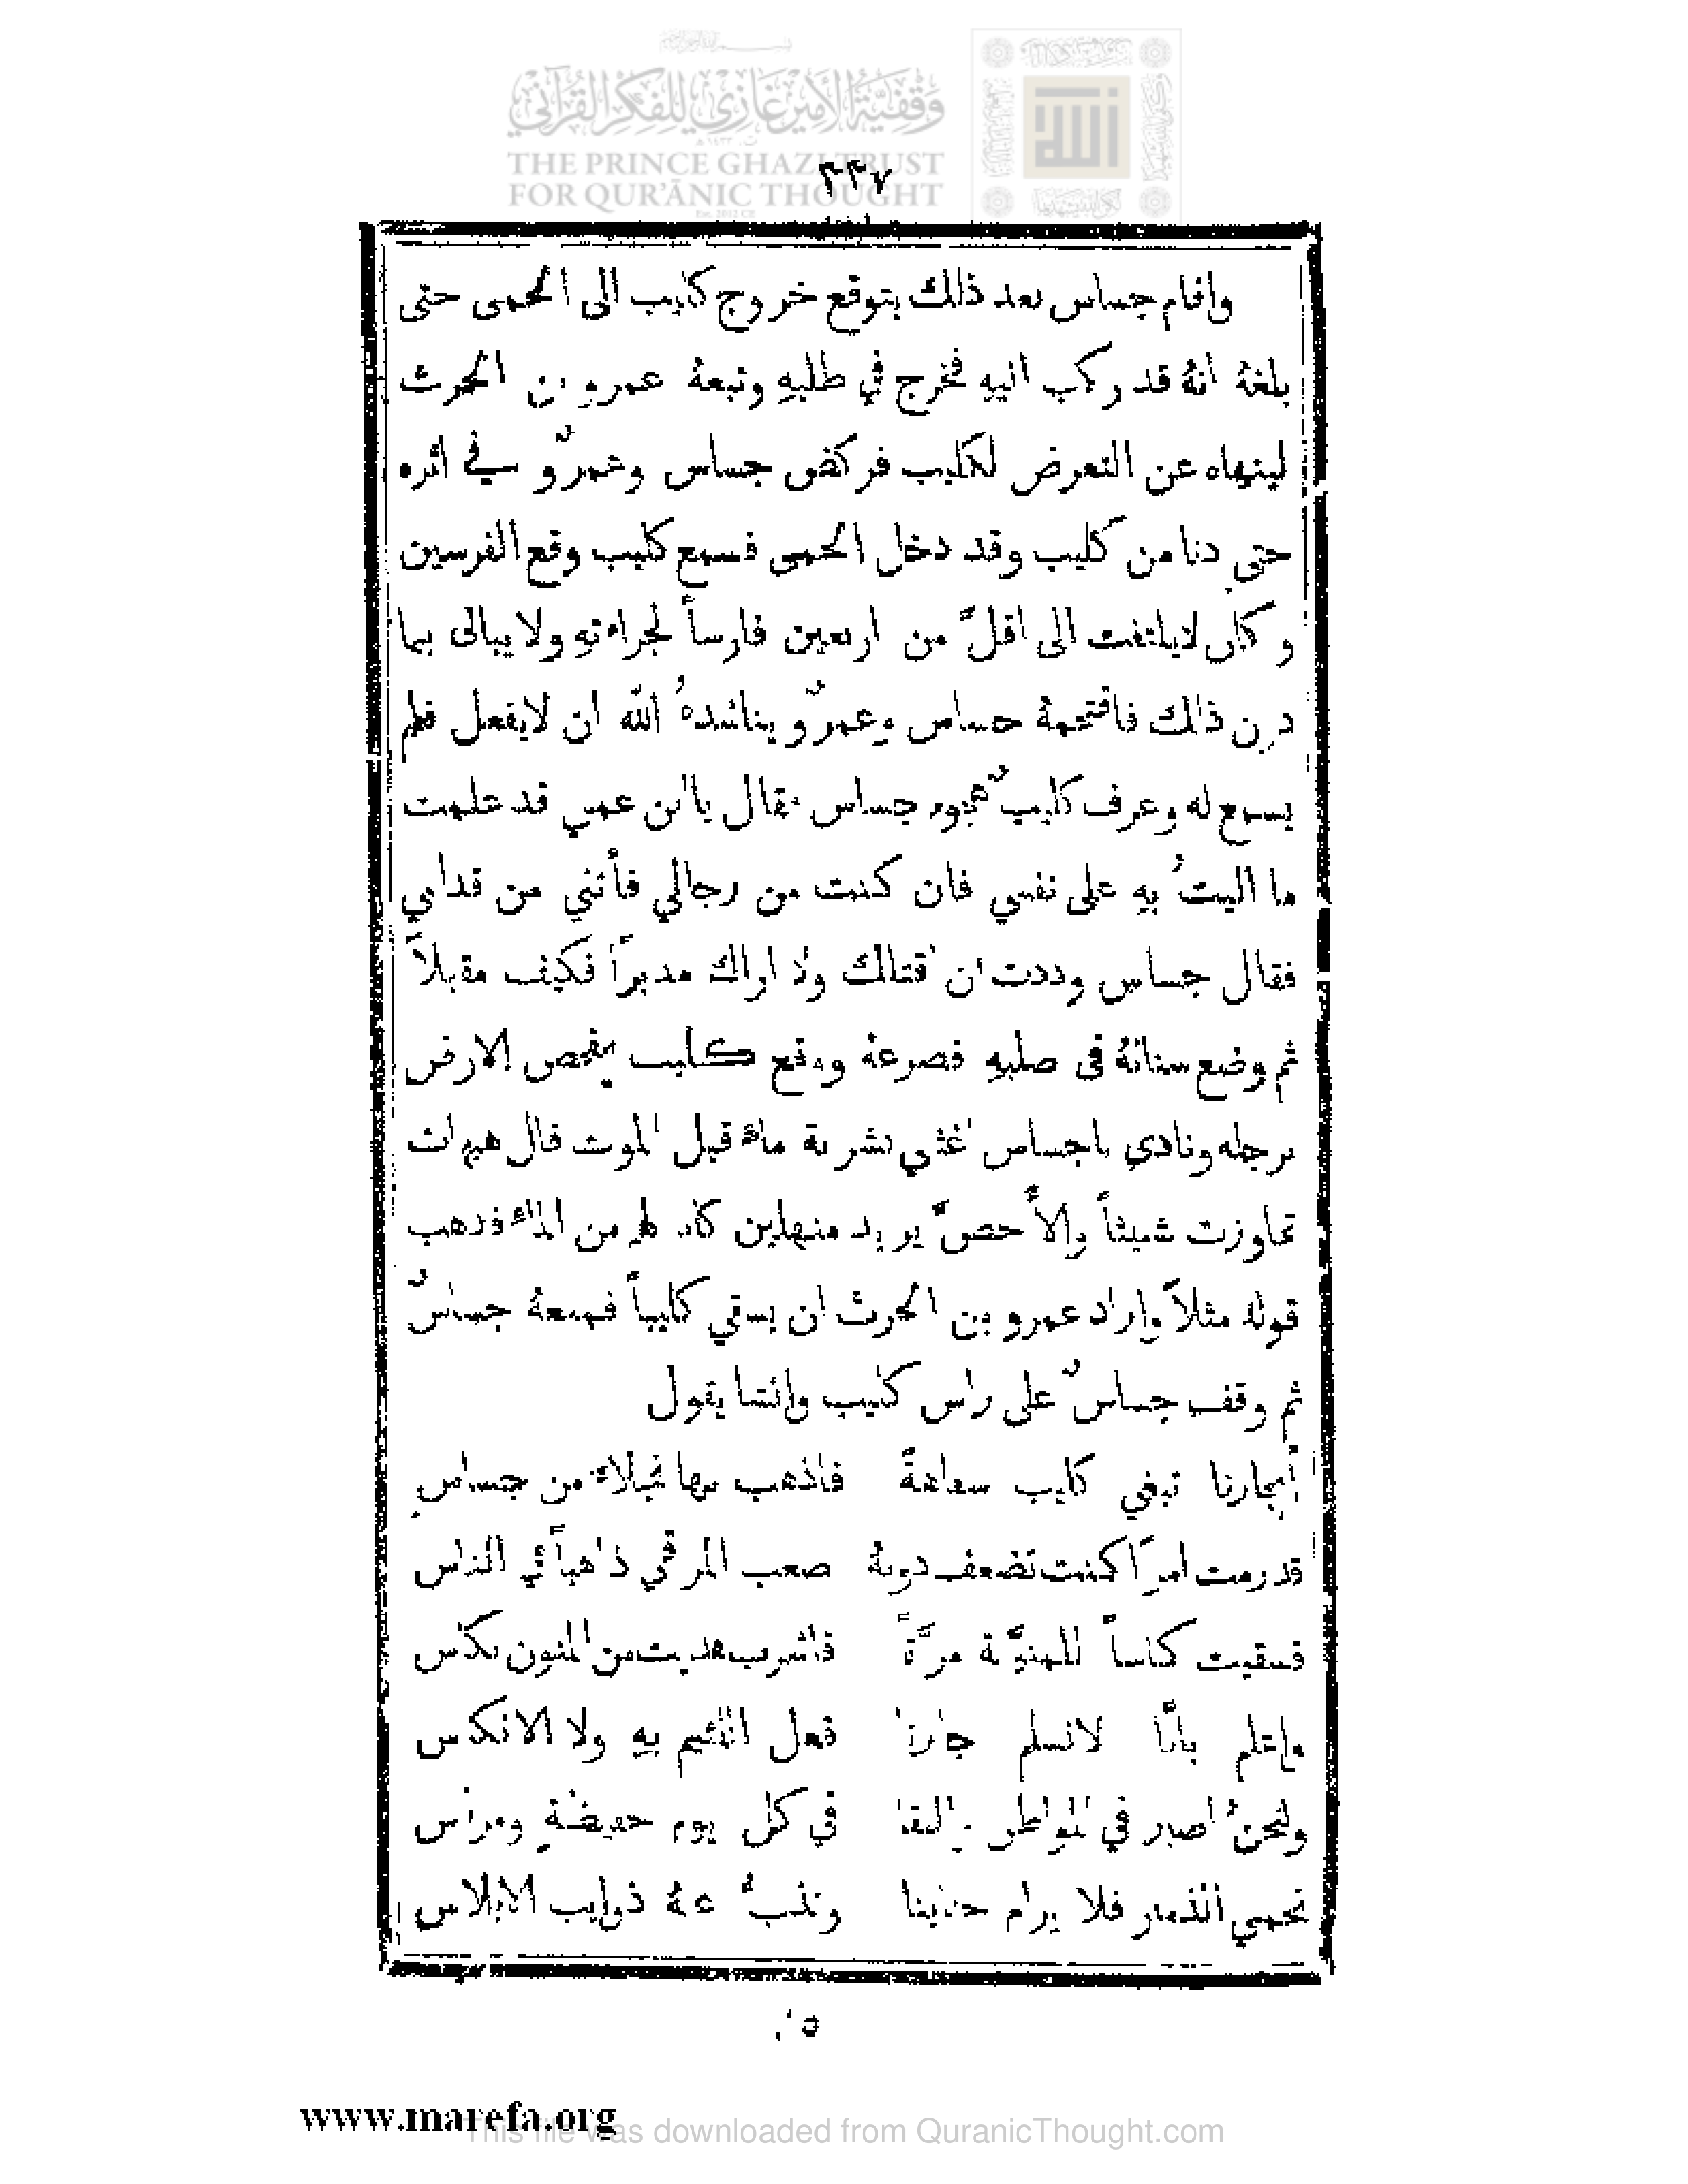 وقفية الأمير غازي للفكر القرآني
THE PRINCE GHAZI TRUST
FOR QUR'ĀNIC THOUGHT
٣٣٧
واقام جساس بعد ذلك يتوقع خروج كليب الى الحمى حتى
بلغهُ انهُ قد ركب اليهِ فخرج في طلبهِ وتبعهُ عمرو بن الحرث
لينهاه عن التعرض لكليب فركض جساس وعمرٌو في اثره
حتى دنا من كليب وقد دخل الحمى فسمع كليب وقع الفرسين
وكان لايلتفت الى اقلَّ من اربعين فارساً لجراءته ولا يبالى بما
دون ذلك فاقتحمهُ جساس وعمرٌو يناشدهُ الله ان لايفعل فلم
يسمع له وعرف كليبٌ جساس فقال ياابن عمي قد علمت
ما اليتُ بهِ على نفسي فان كنت من رجالي فأتني من قدامي
فقال جساس وددت ان اقتلك ولا اراك مدبراً فكيف مقبلاً
ثم وضع سنانهُ فى صلبهِ فصرعهُ ووقع كليب يفحص الارض
برجله ونادى ياجساس اغثني بشربة ماء قبل الموت قال هيهات
تجاوزت شيئاً والأحصّ يريد منهلين كانا لهم من الماء فذهب
قولهُ مثلاً واراد عمرو بن الحرث ان يسقي كليباً فمنعهُ جساسٌ
ثم وقف جساسٌ على راس كليب وانشا يقول
أبجارنا تبغي كليب سفاهةً فاذهب بها نجلاء من جساسِ
قد رمت امرًا كنت تضعف دونهُ صعب المرقي ذاهباً في الناس
فسقيت كاساً للمنيَّة مرَّةً فاشرب هديت من المنون بكاس
واعلم بانَّا لانسلم جارنا فعل اللئيم بهِ ولا الانكاس
ونحنُ اصبر في المواطن واللقا في كل يوم حفيظةٍ ومراس
نحمي الذمار فلا يرام جنابنا ونذبُّ عنهُ ذوايب الابلاس
www.marefa.org
This file was downloaded from QuranicThought.com